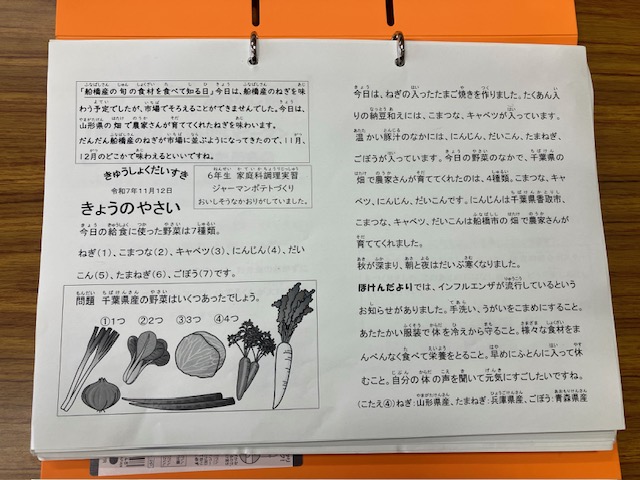 「船橋産の旬の食材を食べて知る日」今日は、船橋産のねぎを味
わう予定でしたが、市場でそろえることができませんでした。今日は、
山形県の畑で農家さんが育ててくれたねぎを味わいます。
だんだん船橋産のねぎが市場に並ぶようになってきたので、11月、
12月のどこかで味わえるといいですね。
きゅうしょくだいすき
令和7年11月12日
きょうのやさい
6年生 家庭科調理実習
ジャーマンポテトづくり
おいしそうなかおりがしていました。
今日の給食に使った野菜は7種類。
ねぎ(1)、こまつな(2)、キャベツ(3)、にんじん(4)、だい
こん(5)、たまねぎ(6)、ごぼう(7)です。
問題 千葉県産の野菜はいくつあったでしょう。
①1つ ②2つ ③3つ ④4つ
今日は、ねぎの入ったたまご焼きを作りました。たくあん入
りの納豆和えには、こまつな、キャベツが入っています。
温かい豚汁のなかには、にんじん、だいこん、たまねぎ、
ごぼうが入っています。今日の野菜のなかで、千葉県の
畑で農家さんが育ててくれたのは、4種類。こまつな、キャ
ベツ、にんじん、だいこんです。にんじんは千葉県香取市、
こまつな、キャベツ、だいこんは船橋市の畑で農家さんが
育ててくれました。
秋が深まり、朝と夜はだいぶ寒くなりました。
ほけんだよりでは、インフルエンザが流行しているという
お知らせがありました。手洗い、うがいをこまめにすること。
あたたかい服装で体を冷えから守ること。様々な食材をま
んべんなく食べて栄養をとること。早めにふとんに入って休
むこと。自分の体の声を聞いて元気にすごしたいですね。
(こたえ④)ねぎ:山形県産、たまねぎ:兵庫県産、ごぼう:青森県産